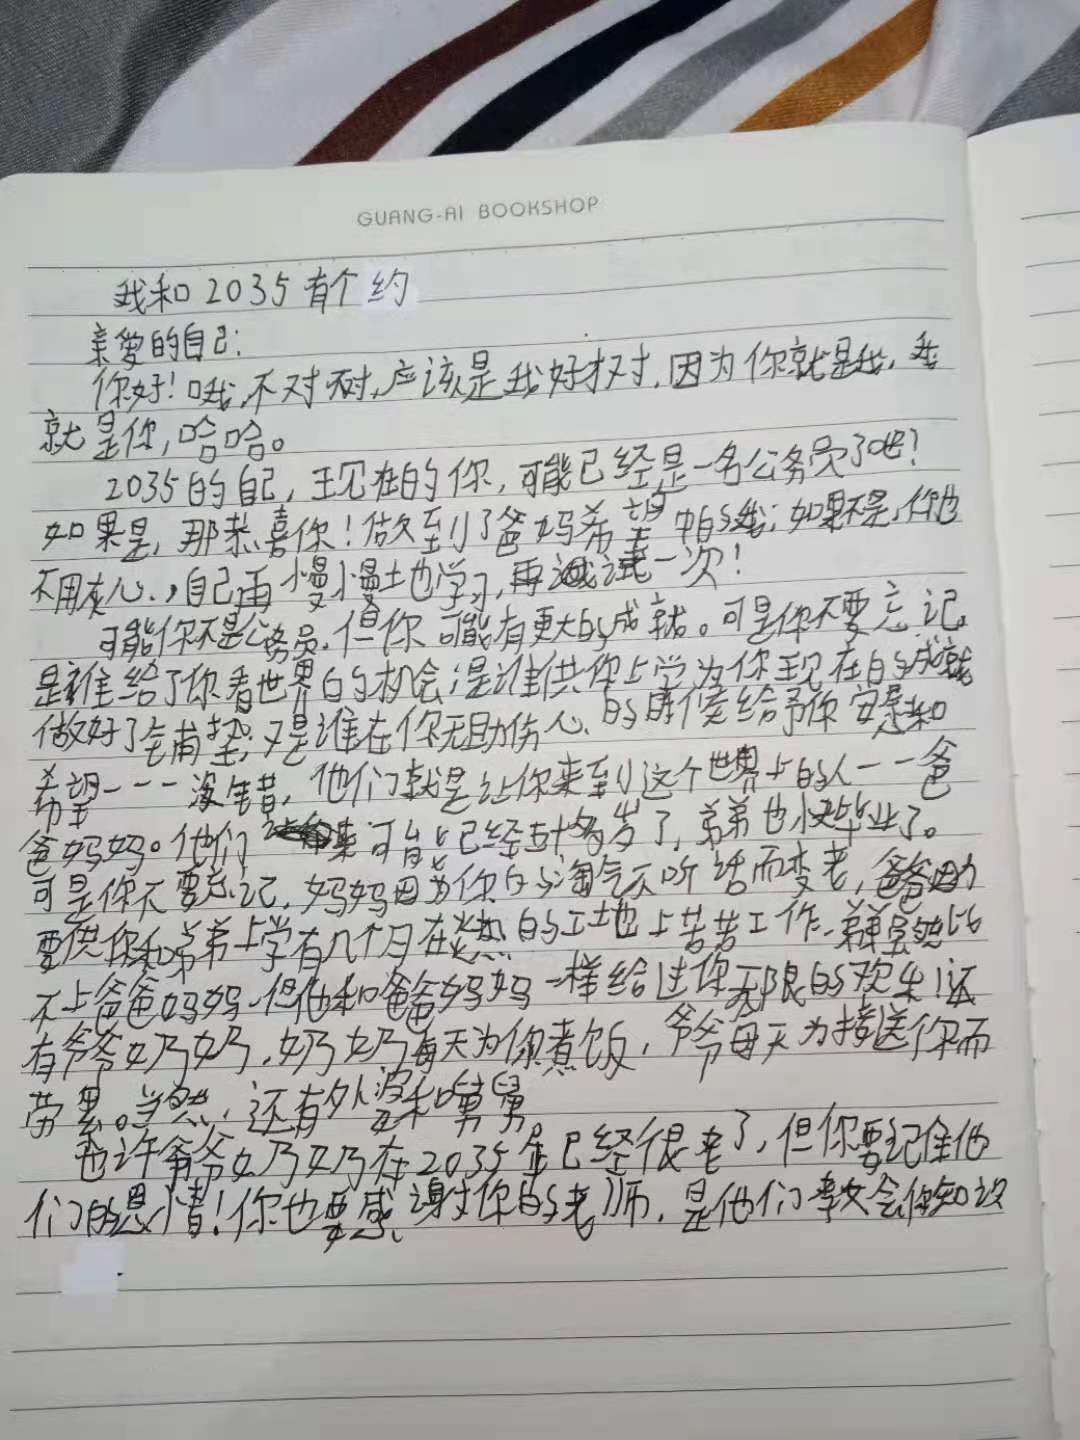 GUANG-AI BOOKSHOP
我和2035有个约
亲爱的自己:
你好!哦,不对不对,应该是我好才对,因为你就是我,我
就是你,哈哈。
2035的自己,现在的你,可能已经是一名公务员了吧?
如果是,那恭喜你!做到了爸妈希望的我;如果不是,你也
不用灰心,自己再慢慢地学习,再试一次!
可能你不是公务员,但你可能有更大的成就。可是你不要忘记
是谁给了你看世界的机会;是谁供你上学为你现在的成就
做好了全铺垫;又是谁在你无助伤心的时候给予你安慰和
希望---没错,他们就是让你来到这个世界上的人--爸
爸妈妈。他们 可能已经五十多岁了,弟弟也快毕业了。
可是你不要忘记,妈妈因为你的淘气不听话而变老,爸爸因为
要供你和弟弟上学有几个月在炎热的工地上苦苦工作,弟弟虽然比
不上爸爸妈妈,但他和爸爸妈妈一样给过你无限的欢乐!还
有爷爷奶奶,奶奶每天为你煮饭,爷爷每天为接送你而
劳累。当然,还有外婆和舅舅
也许爷爷奶奶在2035年已经很老了,但你要记住他
们的恩情!你也要感谢你的老师,是他们教会你知识